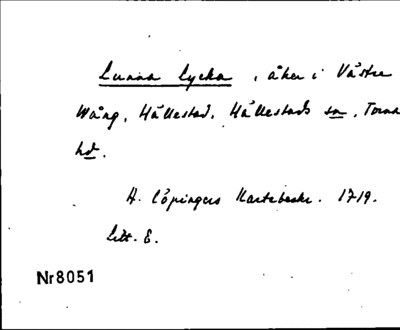 Lunna Lycka, åker i Västre
Wång, Hällestad, Hällestads sn, Torna
hd.
A. Löpingers Kartebeskr. 1719.
Litt. E.
Nr8051